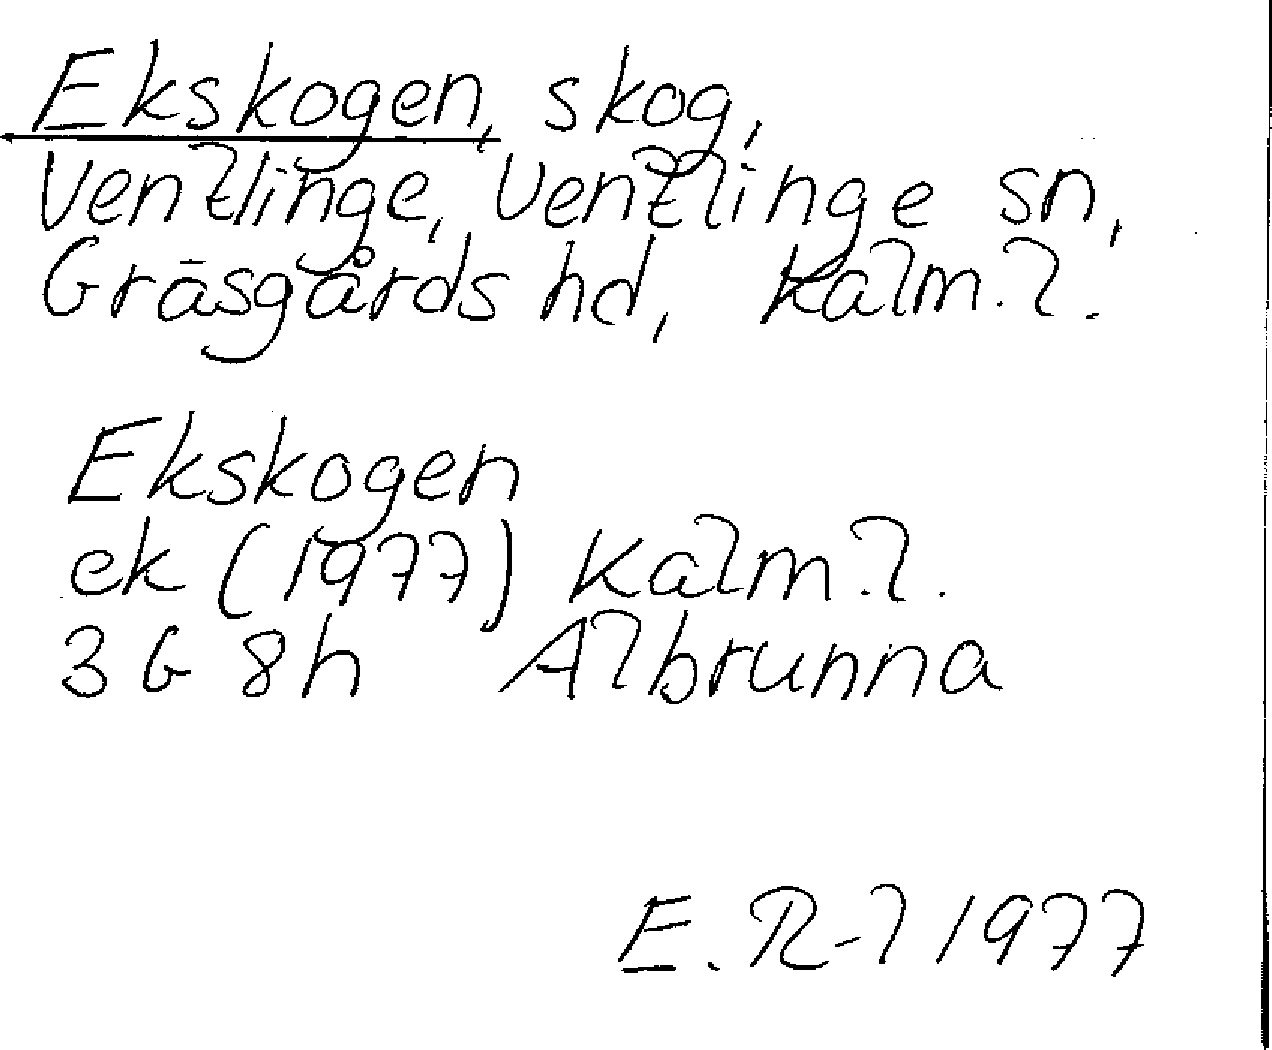 Ekskogen, skog,
Ventlinge, Ventlinge sn,
Gräsgårds hd, Kalm. l.
Ekskogen
ek (1977) Kalm. l.
3 G 8h Albrunna
E. R-l 1977